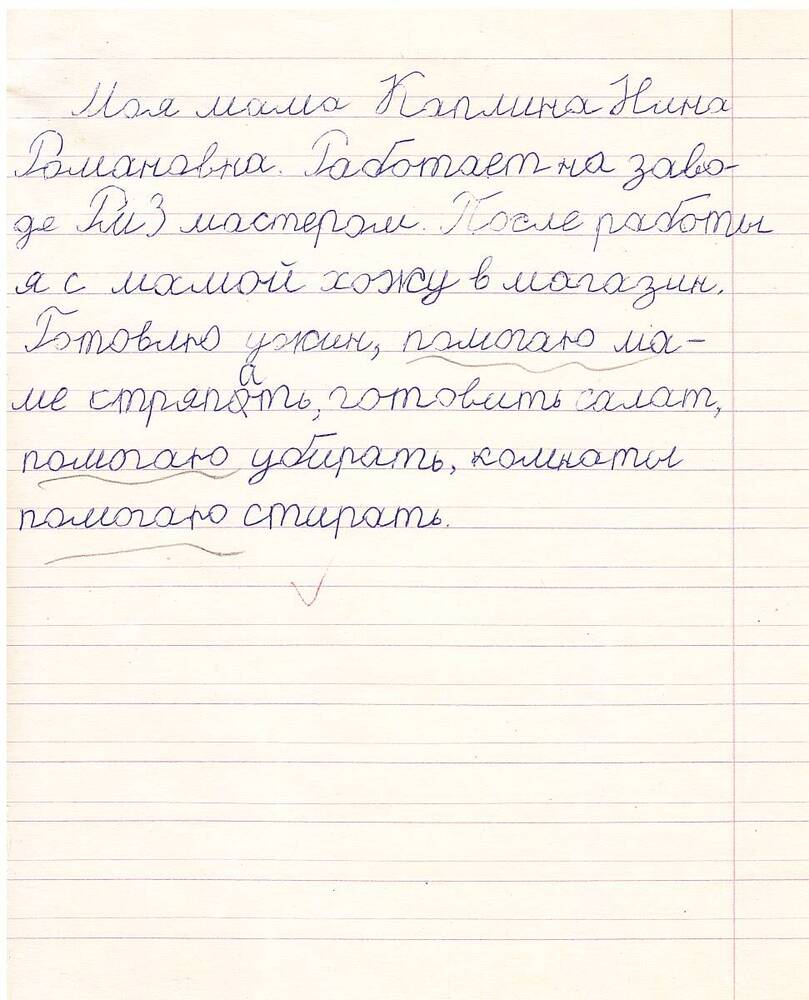 Моя мама Каплина Нина
Романовна. Работает на заво-
де РМЗ мастером. После работы
я с мамой хожу в магазин.
Готовлю ужин, помогаю ма-
ме стряпать, готовить салат,
помогаю убирать, комнаты
помогаю стирать.